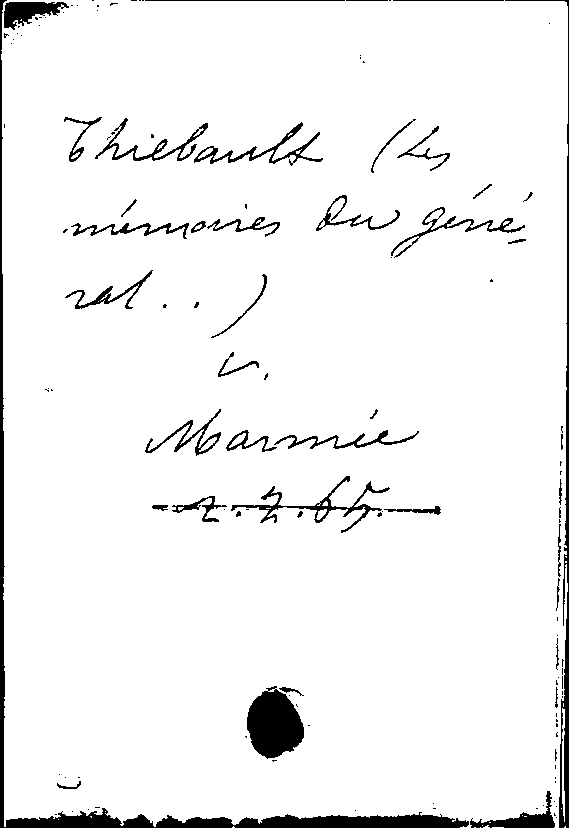 Thiébault (Les
mémoires du géné-
ral . . )
v.
Marmée
z. z. 65.